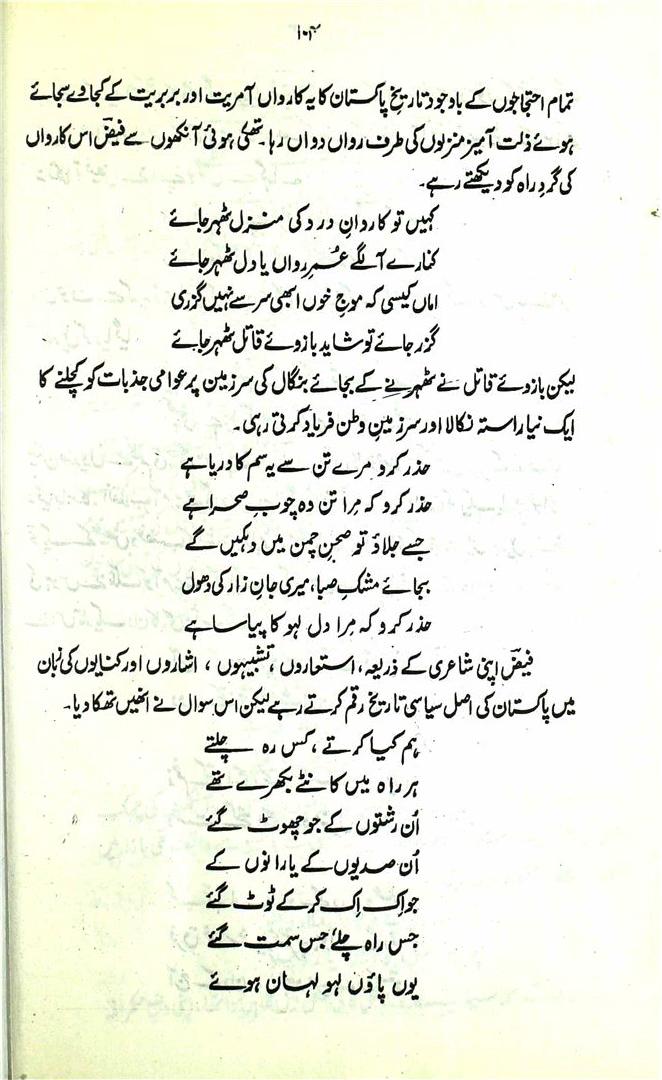 ۱۰۴
تمام احتجاجوں کے باوجود تاریخِ پاکستان کا یہ کارواں آمریت اور بربریت کے کجاوے سجائے
ہوئے ذلت آمیز منزلوں کی طرف رواں دواں رہا۔ تھکی ہوئی آنکھوں سے فیضؔ اس کارواں
کی گردِ راہ کو دیکھتے رہے۔
کہیں تو کاروانِ درد کی منزل ٹھہر جائے
کنارے آ لگے عمرِ رواں یا دل ٹھہر جائے
اماں کیسی کہ موجِ خوں ابھی سر سے نہیں گزری
گزر جائے تو شاید بازوئے قاتل ٹھہر جائے
لیکن بازوئے قاتل نے ٹھہرنے کے بجائے بنگال کی سرزمین پر عوامی جذبات کو کچلنے کا
ایک نیا راستہ نکالا اور سرزمینِ وطن فریاد کرتی رہی۔
حذر کرو مرے تن سے یہ سم کا دریا ہے
حذر کرو کہ مرا تن وہ چوبِ صحرا ہے
جسے جلاؤ تو صحنِ چمن میں دہکیں گے
بجائے مشکِ صبا، میری جانِ زار کی دھول
حذر کرو کہ مرا دل لہو کا پیاسا ہے
فیضؔ اپنی شاعری کے ذریعہ، استعاروں، تشبیہوں، اشاروں اور کنایوں کی زبان
میں پاکستان کی اصل سیاسی تاریخ رقم کرتے رہے لیکن اس سوال نے انھیں تھکا دیا۔
ہم کیا کرتے، کس رہ چلتے
ہر راہ میں کانٹے بکھرے تھے
اُن رشتوں کے جو چھوٹ گئے
اُن صدیوں کے یارانوں کے
جو اِک اِک کر کے ٹوٹ گئے
جس راہ چلے جس سمت گئے
یوں پاؤں لہو لہان ہوئے